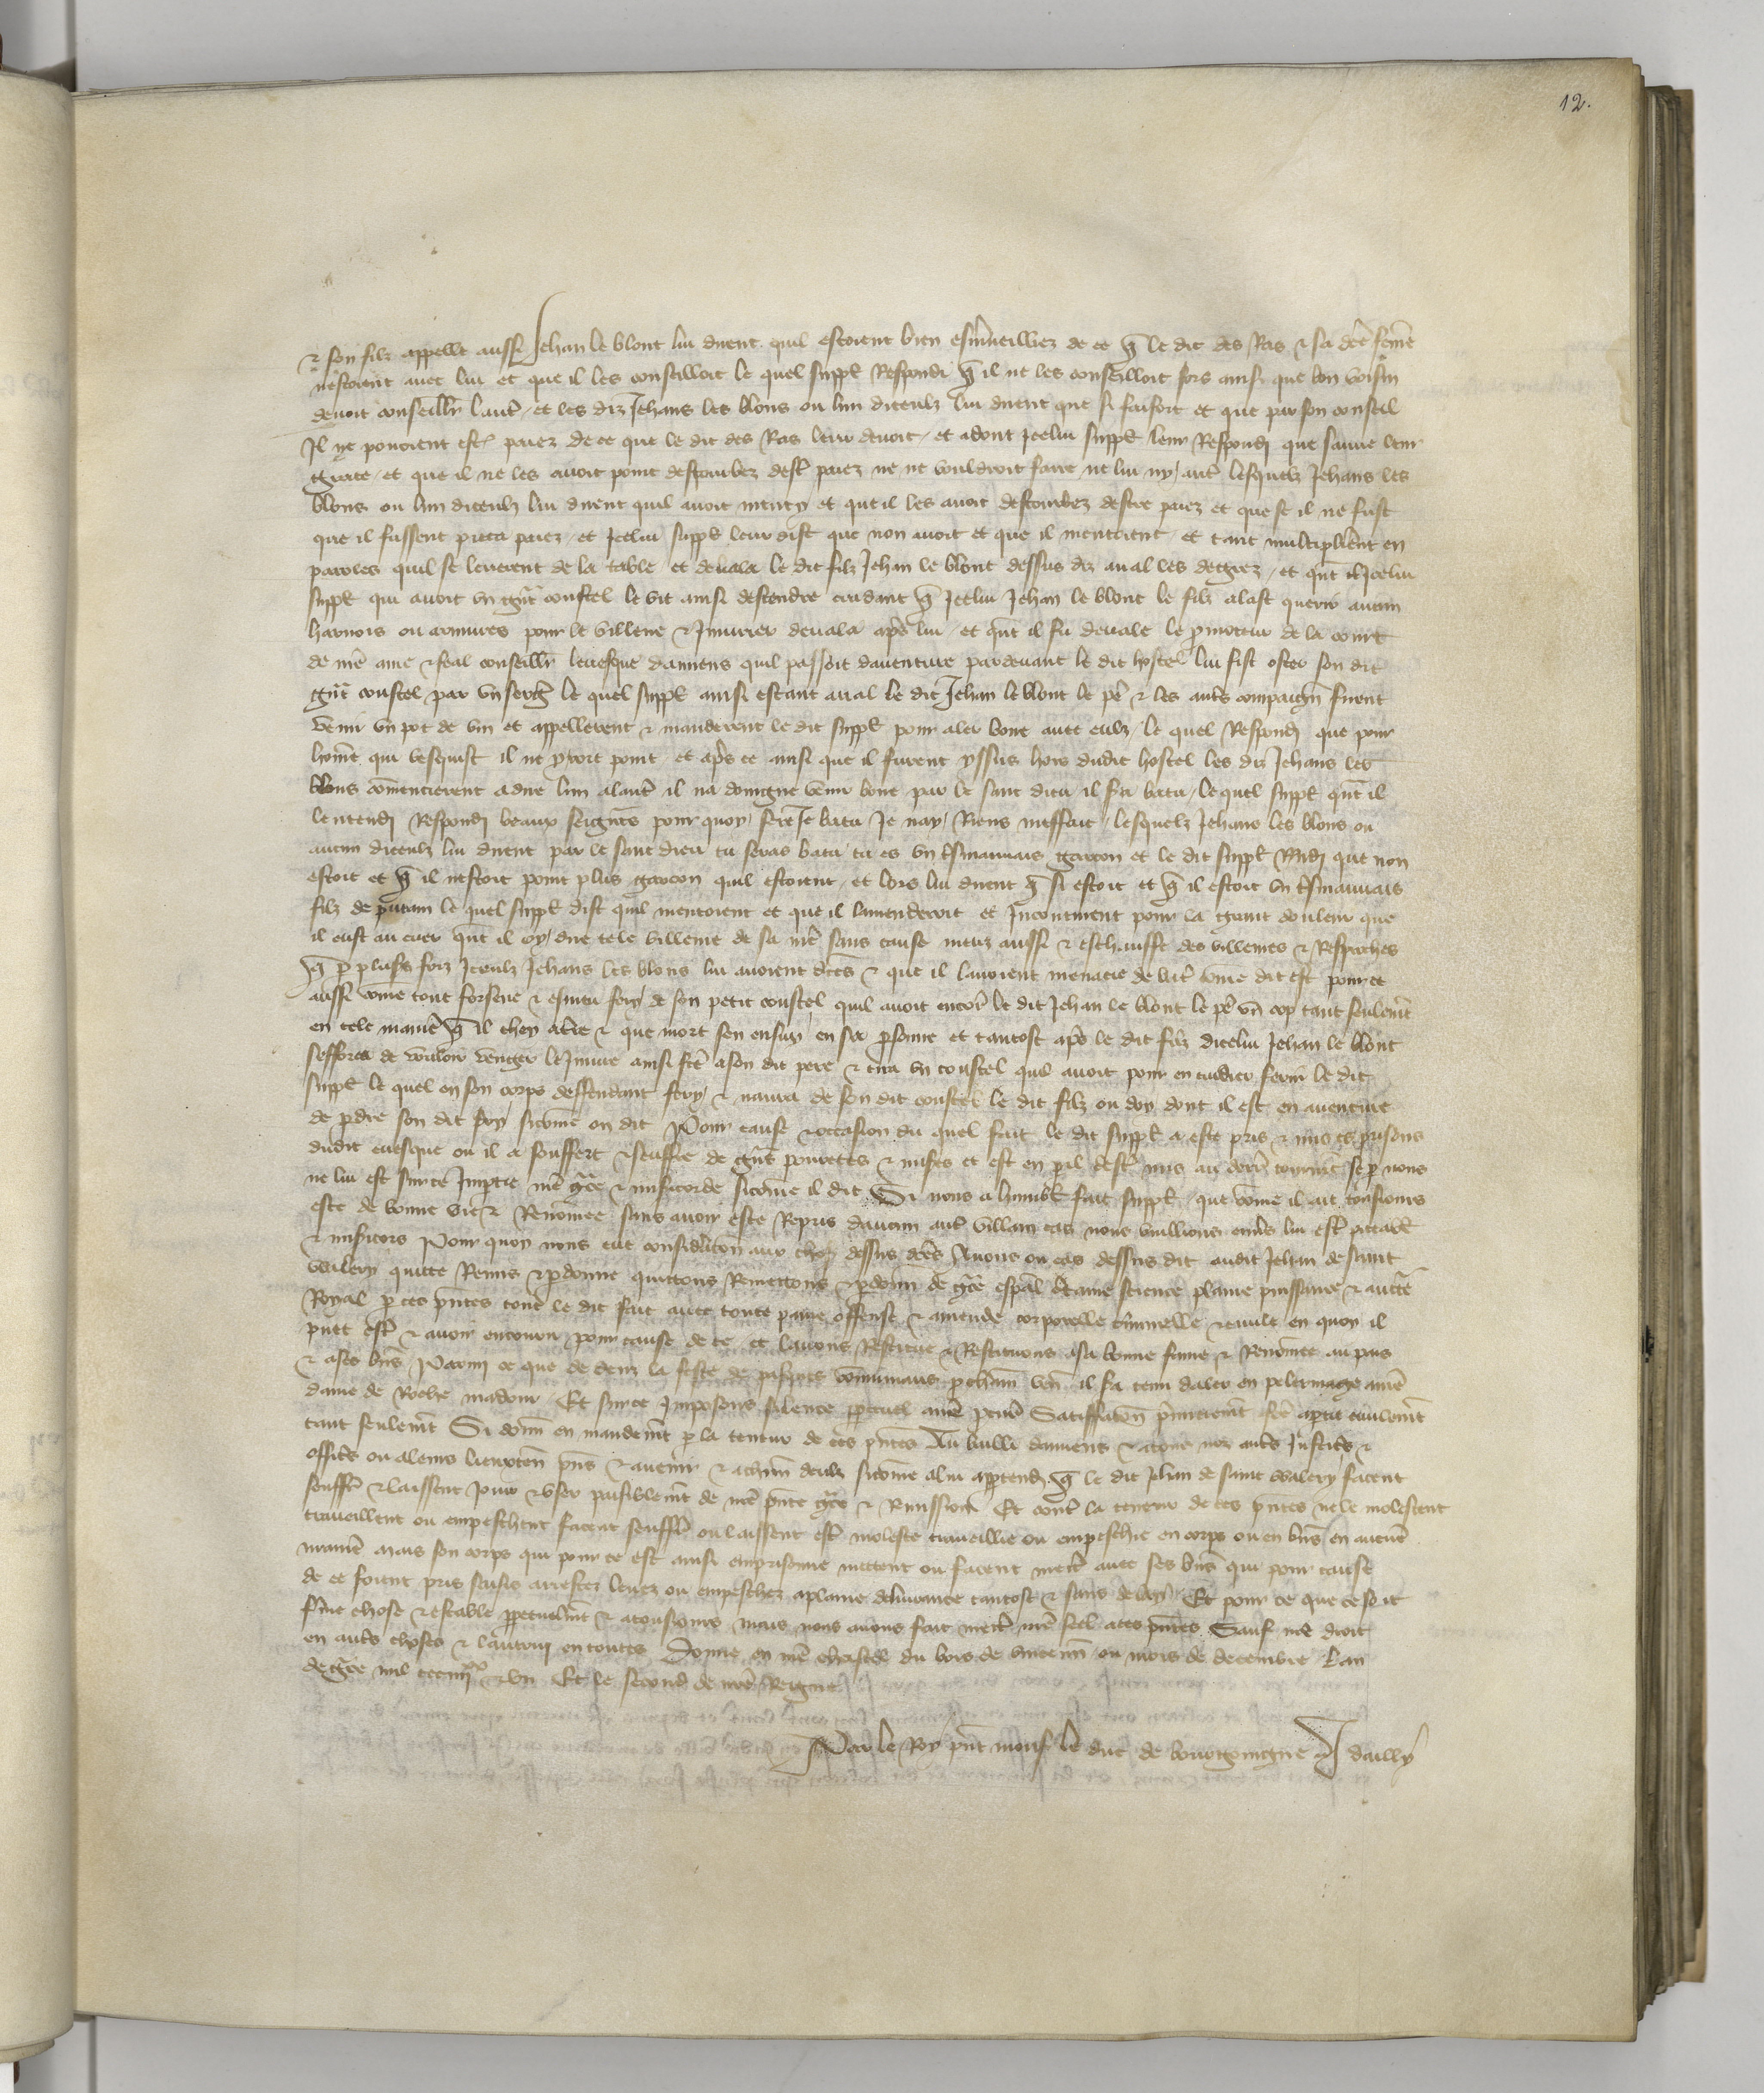 12.
& son filz appelle aussi Jehan le blont lui dirent quil estoient bien esmerveilliez de ce q̃ le dit des Ras & sa dc̃e fem̃e
nestoient avec lui et que il les conseilloit le quel suppl̃ Respondi q̃ il ne les conseilloit fors ainsi que bon voisin
devoit conseillr̃ lautr̃ et les diz Jehans les blons ou lun diceulz lui dirent que si faisoit et que par son conseil
Il ne povoient estr̃ paiez de ce que le dit des Ras leur devoit et adont icelui suppl̃ leur Respondi que sauve leur
grace et que il ne les avoit point destourbez destr̃ paiez ne ne vouldroit faire ne lui ny autr̃ lesquelz Jehans les
blons ou lun diceulz lui dirent quil avoit menty et que il les avoit destourbez destre paiez et que se il ne fust
que il fussent pieca paiez et icelui suppl̃ leur dist que non avoit et que il mentoient et tant multiplierẽt en
paroles quil se leverent de la table et devala le dit filz Jehan le blont dessus diz aval les degrez et qũt il Icelui
suppl̃ qui avoit un grãt coustel le vit ainsi descendre cuidant q̃ Icelui Jehan le blont le filz alast querir aucun
harnois ou armures pour le villener & Iniurier devala apr̃s lui et qũt il fu devale le p̃moteur de la court
de nr̃e ame & feal conseillr̃ levesque damiens quil passoit daventure pardevant le dit hostel lui fist oster son dit
grãt coustel par un serg̃ le quel suppl̃ ainsi estant aval le dit Jehan le blont le pẽ & les autr̃s compaign̄ firent
venir un pot de vin et appellerent & manderent le dit suppl̃ pour aler boire avec eulz le quel Respondi que pour
hom̃e qui vesquist il ne yroit point et apr̃s ce ainsi que il furent yssus hors dudit hostel les diz Jehans les
blons com̃encierent a dire lun a lautr̃ il na daingne venir boire par le sanc dieu il fera batu lequel suppl̃ qũt il
lentendi Respondi beaux seigneurs pour quoy sere Je batu Je nay Riens meffait lesquelz Jehans les blons ou
aucun diceulz lui dirent par le sanc dieu tu seras batu tu es un tr̃smauvais garcon et le dit suppl̃ Rñdi que non
estoit et q̃ il nestoit point plus garcon quil estoient et lors lui dirent q̃ si estoit et q̃ il estoit un tr̃smauvais
filz de putain le quel suppl̃ dist quil mentoient et que il lamenderoit et Incontinent pour la grant douleur que
il eust au cuer qũt il oy dire tele villenie de sa mẽ sans cause meuz aussi & eschauffe des villenies & Reproches
q̃ p̱ plus̃s foiz Iceulz Jehans les blons lui avoient dc̃es & que il lavoient menacie de batr̃ com̃e dit est pour ce
aussi com̃e tout forsene & esmeu fery de son petit coustel quil avoit encor̃ le dit Jehan le blont le pẽ un cop tant seulem̃t
en tele manier̃ q̃ il chey a tr̃e & que mort sen ensuy en sa p̱sonne et tantost apr̃s le dit filz dicelui Jehan le blont
sefforca de vouloir venger leiniure ainsi fc̃e a son dit pere & tira un coustel quil avoit pour en cuidier ferir le dit
suppl̃ le quel en son corps deffendant fery & navra de son dit coustel le dit filz ou doy dont il est en aventure
de p̱dre son dit doy sicom̃e on dit Pour cause & occasion du quel fait le dit suppl̃ a este pris & mis es prisons
dudit evesque ou il a souffert & seuffre de grãt povretes & mises et est en p̱il destr̃ mis au derr̃ tourmẽt se p̱ nous
ne lui est sur ce Impartie nr̃e gr̃ce & mis̃icorde sicom̃e il dit Si nous a humblẽ fait suppl̃ que com̃e il ait tousiours
este de bonne vie & Renom̃ee sans avoir este Repris daucun autr̃ villain cas nous vuillions envs̃ lui estr̃ piteable
& mis̃icors Pour quoy nous eue consideracõn aux chos̃ dessus dc̃es Avons ou cas dessus dit audit Jehan de saint
walery quitte Remis & p̱donne quittons Remettons & p̱donn̄ de gr̃ce espal̃ c̃taine science plaine puissance & auctẽ
Royal p̱ ces p̃ntes tout le dit fait avec toute paine offense & amende corporelle c̃riminelle & civile en quoy il
puet estr̃ & avoir encouru pour cause de ce et lavons Restitue & Restituons a sa bonne fame & Renom̃ee au pais
& a ses biẽs Parmi ce que de dens la feste de pasques com̃uniaus p̱cham̄ ven̄ il sa tenu daler en pelerinage a nr̃e
dame de Roche madour Et sur ce Imposons silence p̱petuel a nr̃e procur̃ Satisfacõn p̃mieremẽt fc̃e a p̱tie civilemẽt
tant seulemẽt Si donn̄ en mandemẽt p̱ la teneur de ces p̃ntes Au bailli damiens & a tous noz autr̃s Justic̃s &
offic̃s ou a leurs lieuxten̄ p̃ns & avenir & a chũn deulz sicom̃e a lui app̱tendr̃ q̃ le dit Jehan de saint walery facent
souffr̃t & laissent Joir & user paisiblemẽt de nr̃e p̃nte gr̃ce & Remission Et contr̃ la teneur de ces p̃ntes ne le molestent
traveillent ou empeschent facent souffr̃ ou laissent estr̃ moleste traveillie ou empeschie en corps ou en biẽs en aucũe
manier̃ Mais son corps qui pour ce est ainsi emprisonne mettent ou facent mettr̃ avec ses biẽs qui pour cause
de ce soient pris saisis arrestez levez ou empeschez a plaine delivrance tantost & sans delay Et pour ce que ce soit
ferme chose & estable p̱petuelm̃t & a tousiours mais nous avons fait mettr̃ nr̃e seel a ces p̃ntes Sauf nr̃e droit
en autr̃s choses & lautrui en toutes Donne en nr̃e chastel du bois de vincenn̄ ou mois de decembre Lan
de gr̃ce mil ccciiijˣˣ & un Et le second de nr̃e Regne
Par le Roy p̃nt mons̃ le duc de bourgoingne J dailly